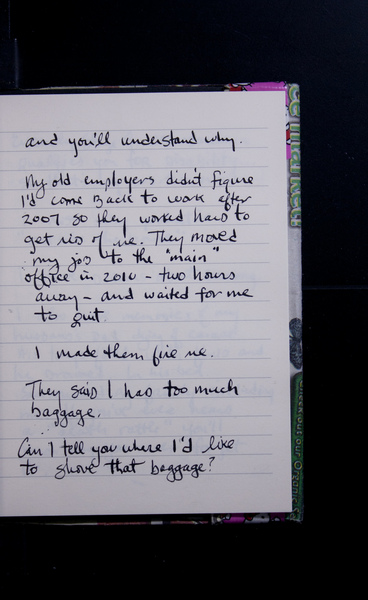 and you'll understand why.
My old employers didn't figure
I'd come back to work after
2007 so they worked hard to
get rid of me. They moved
my job to the "main"
office in 2010 - two hours
away - and waited for me
to quit.
I made them fire me.
They said I had too much
baggage.
Can I tell you where I'd like
to shove that baggage?
check out our Organic